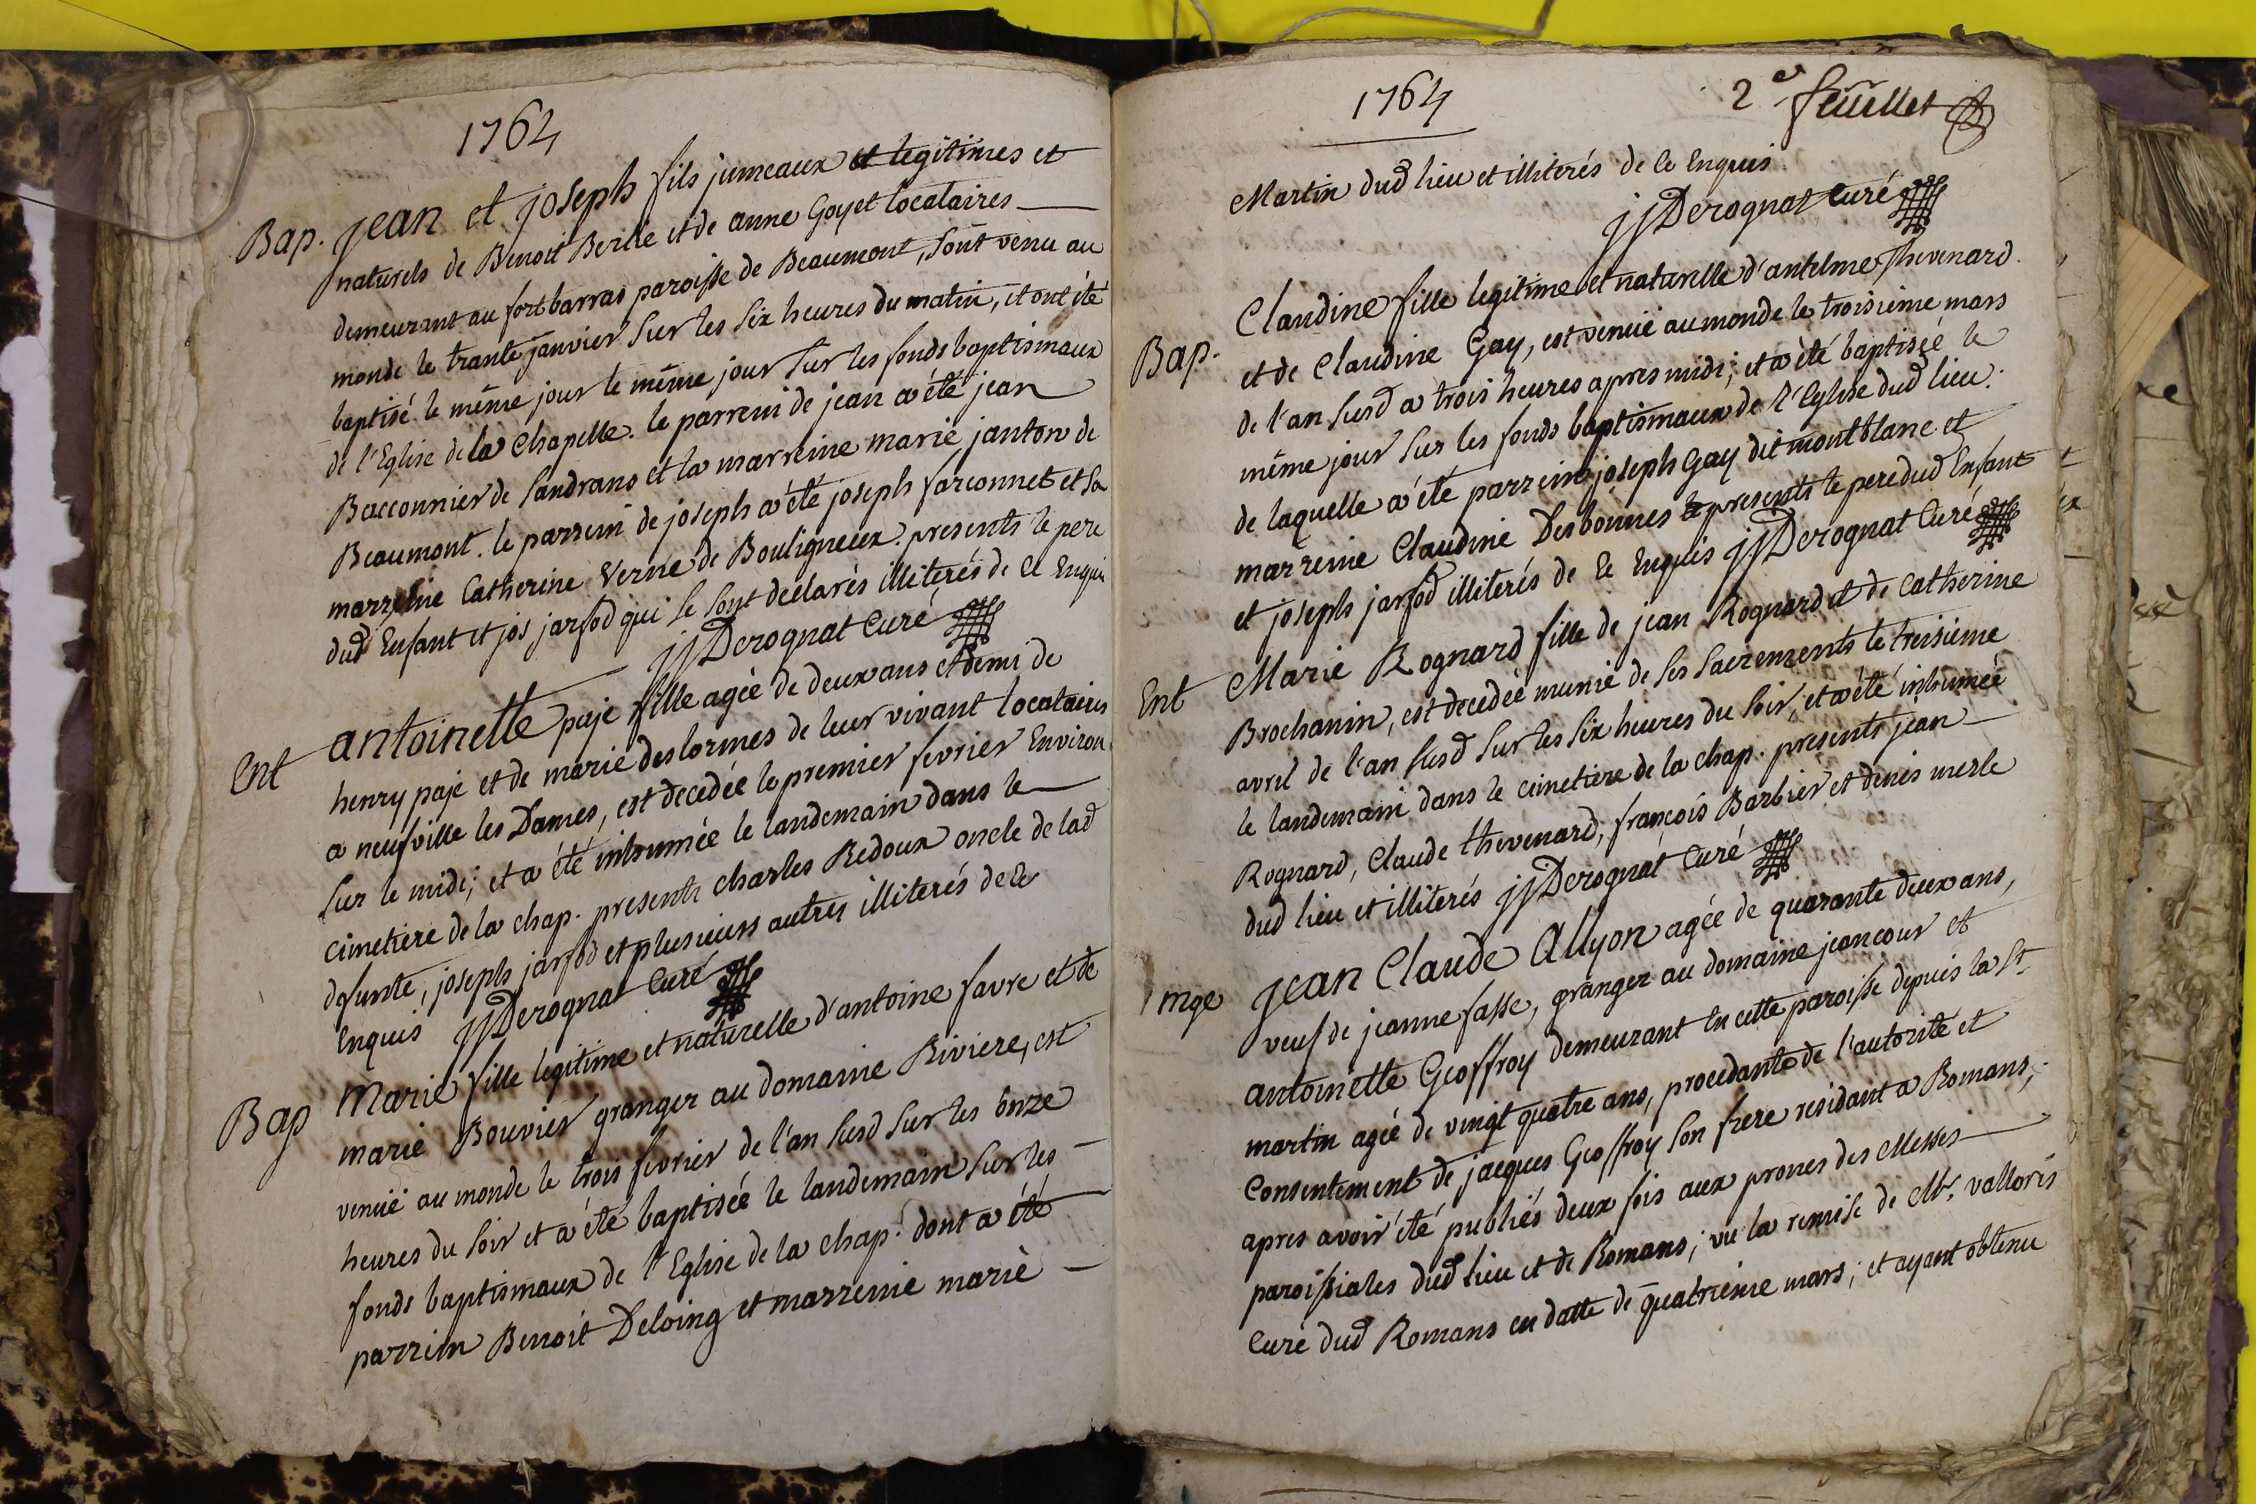 1764
Bap. jean et joseph fils jumeaux et legitimes et
naturels de Benoit Berlie et de anne Goyet locataires
demeurant au fort barras paroisse de Beaumont, sont venu au
monde le trante janvier sur les six heures du matin, et ont été
baptisé le même jour le même jour sur les fonds baptismaux
de l'Eglise de la Chapelle. le parrein de jean a été jean
Bacconnier de Sandrans et la marreine marie janton de
Beaumont. le parrein de joseph a été joseph farconnet et sa
marreine Catherine Verne de Bouligneux. presents le pere
dud Enfant et jos jarfod qui se sont déclarés illiterés de ce Enquis
jjDerognat Curé
Ent antoinette paje fille agée de deux ans et demi de
henry paje et de marie deslormes de leur vivant locataires
a neufville les Dames, est decedée le premier fevrier Environ
sur le midi; et a été inhumée le landemain dans le
cimetiere de la chap. presents charles Redoux oncle de lad
defunte, joseph jarfod et plusieurs autres illiterés de ce
Enquis jjDerognat Curé
Bap Marie fille legitime et naturelle d'antoine favre et de
marie Bouvier granger au domaine Riviere, est
venüe au monde le trois fevrier de l'an susd sur les onze
heures du soir et a été baptisée le landemain sur les
fonds baptismaux de l'Eglise de la chap. dont a été
parrein Benoit Deloing et marreine marie
1764
2e feuillet
Martin dud lieu et illiterés de ce Enquis
jjDerognat Curé
Bap. Claudine fille legitime et naturelle d'antelme Thevenard
et de Claudine Gay, est venüe au monde le troisieme mars
de l'an susd a trois heures apres midi; et a été baptisée le
même jour sur les fonds baptismaux de l'Eglise dud lieu.
de laquelle a été parrein joseph Gay dit montblanc et
marreine Claudine Desbonnes le presents le pere dud Enfant
et joseph jarfod illiterés de ce Enquis jjDerognat Curé
Ent Marie Rognard fille de jean Rognard et de Catherine
Brochanin, est decedée munie de ses sacrements le treisieme
avril de l'an susd sur les six heures du soir, et a été inhumée
le landemain dans le cimetiere de la chap. presents jean
Rognard, Claude thevenard, françois Barbier et denis merle
dud lieu et illiterés jjDerognat Curé
mge jean Claude Allyon agée de quarante deux ans,
veuf de jeanne fasse, granger au domaine jeancour et
antoinette Geoffroy demeurant en cette paroisse depuis la St
martin agée de vingt quatre ans, procedante de l'autorité et
Consentement de jacques Geoffroy son frere residant a Romans;
apres avoir été publiés deux fois aux prones des Messes
paroissiales dud lieu et de Romans; vu la remise de Mr. valloris
Curé dud Romans en datte de quatrieme mars; et ayant obtenu